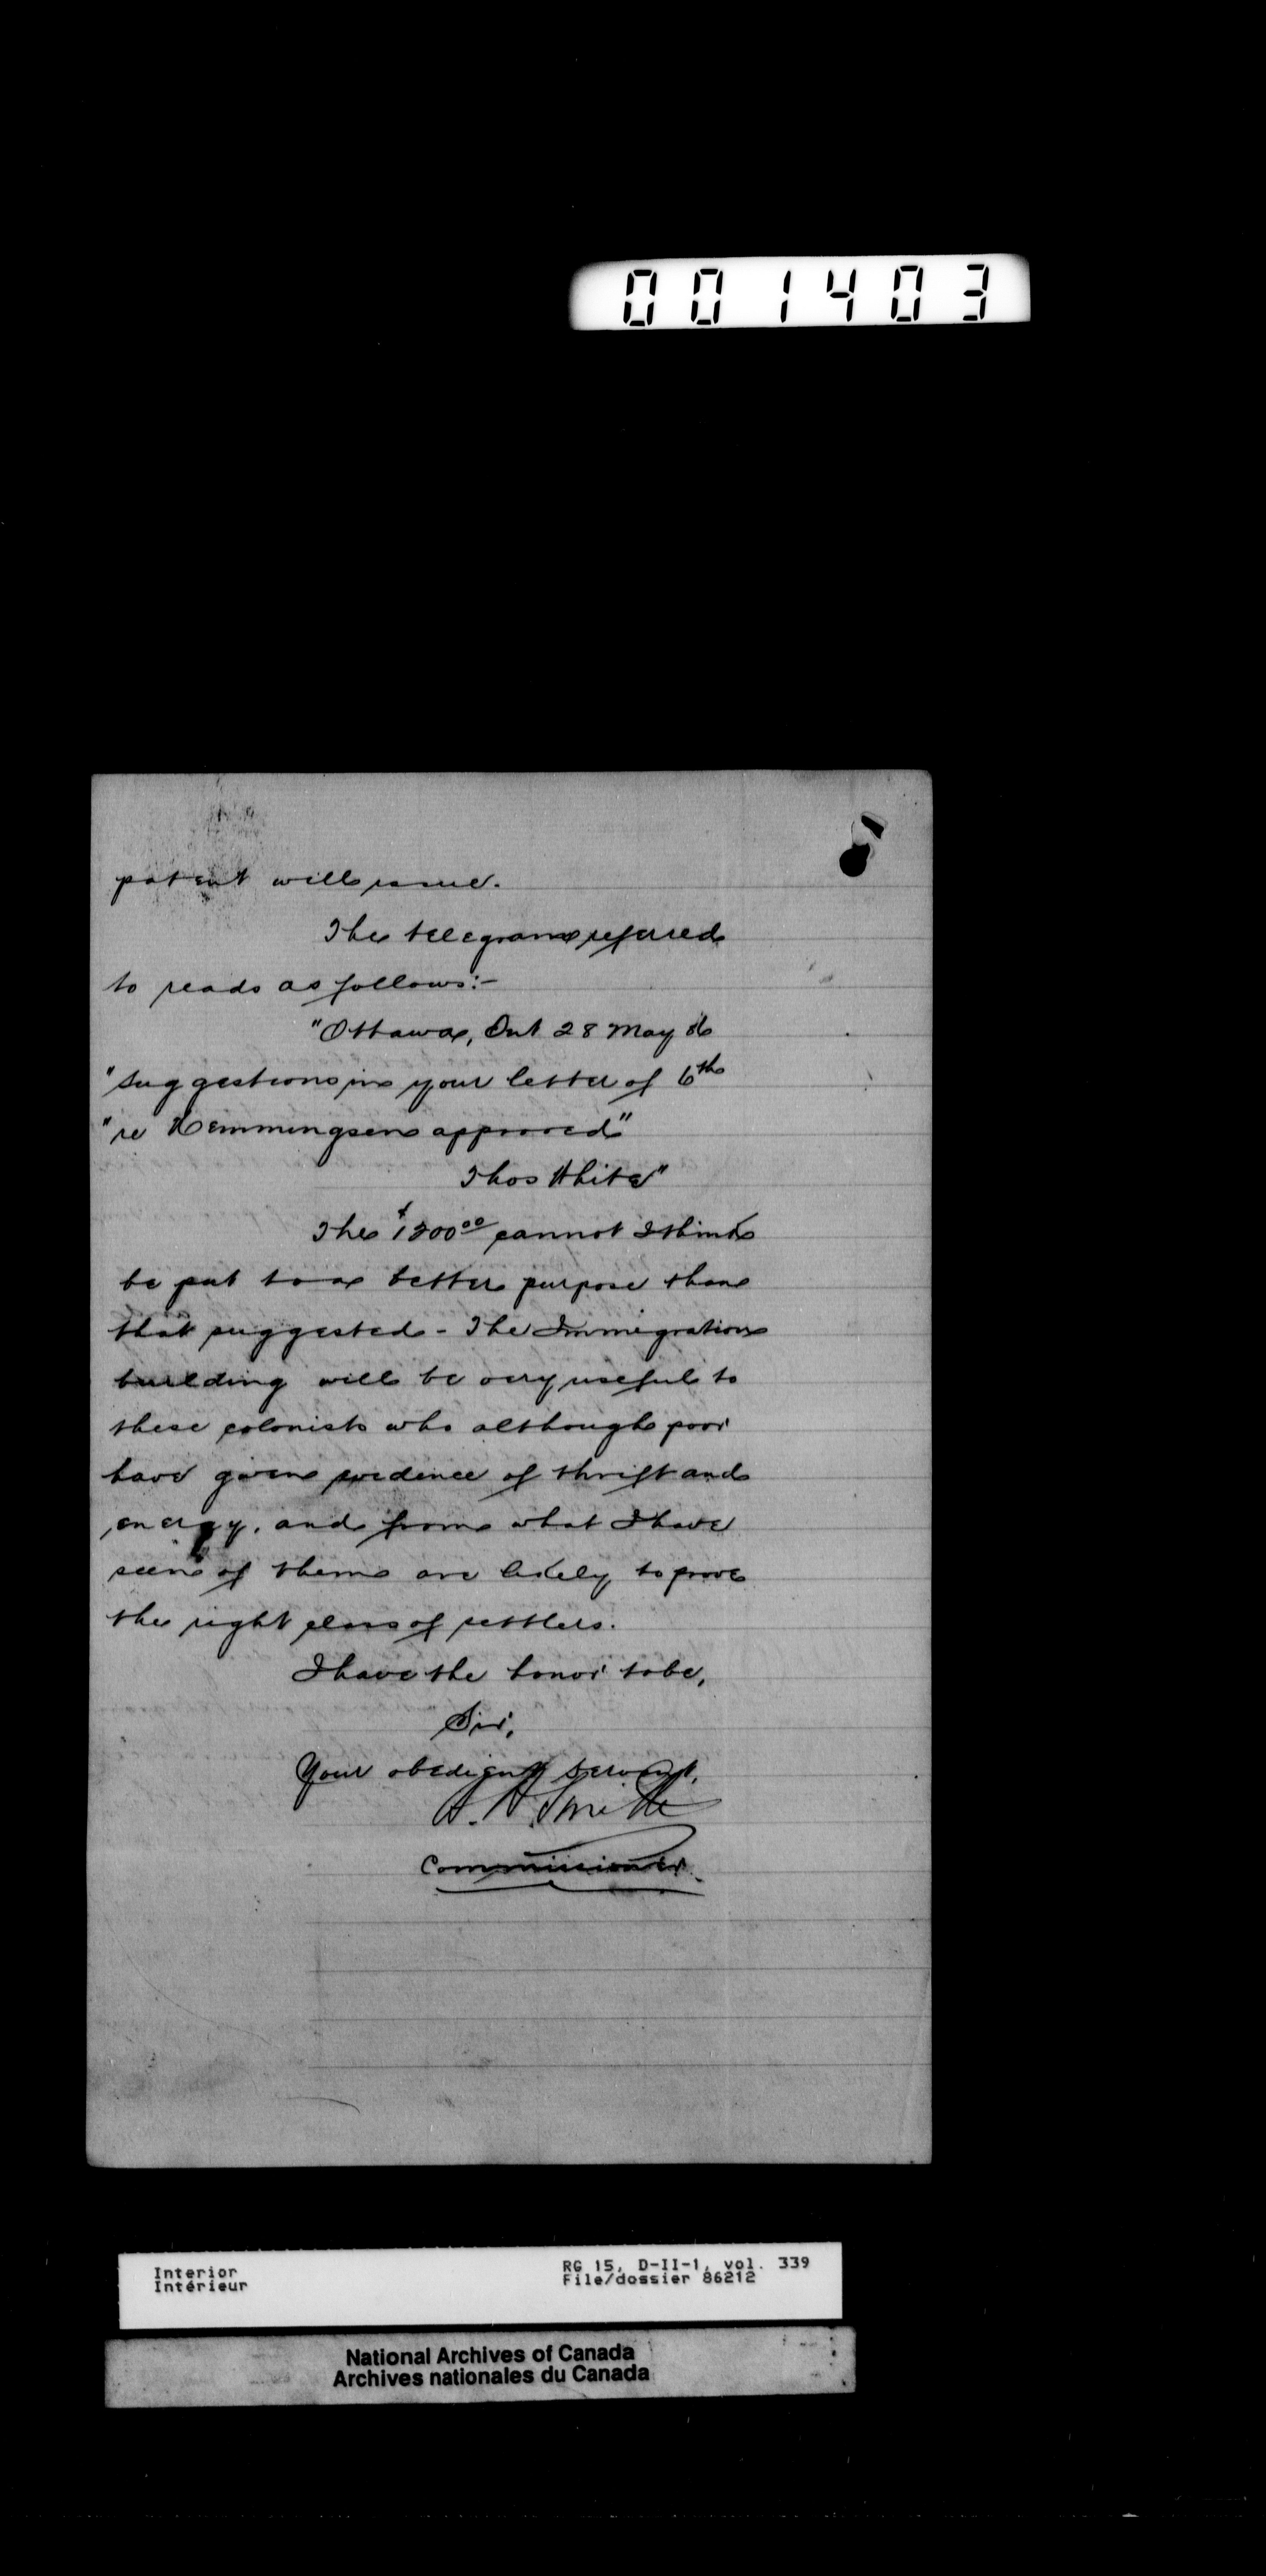 001403
patent will issue.
The telegram referred
to reads as follows:-
"Ottawa, Ont 28 May 86
"Suggestions in your letter of 6th
"re Hemmingsen approved"
Thos White"
The $1200.00 cannot I think
be put to a better purpose than
that suggested - The Immigration
building will be very useful to
these colonists who although poor
have given evidence of thrift and
energy, and from what I have
seen of them are likely to prove
the right class of settlers.
I have the honor to be,
Sir,
Your obedient servant,
H. H. Smith
Commissioner.
Interior
Intérieur
RG 15, D-II-1, vol. 339
File/dossier 86212
National Archives of Canada
Archives nationales du Canada